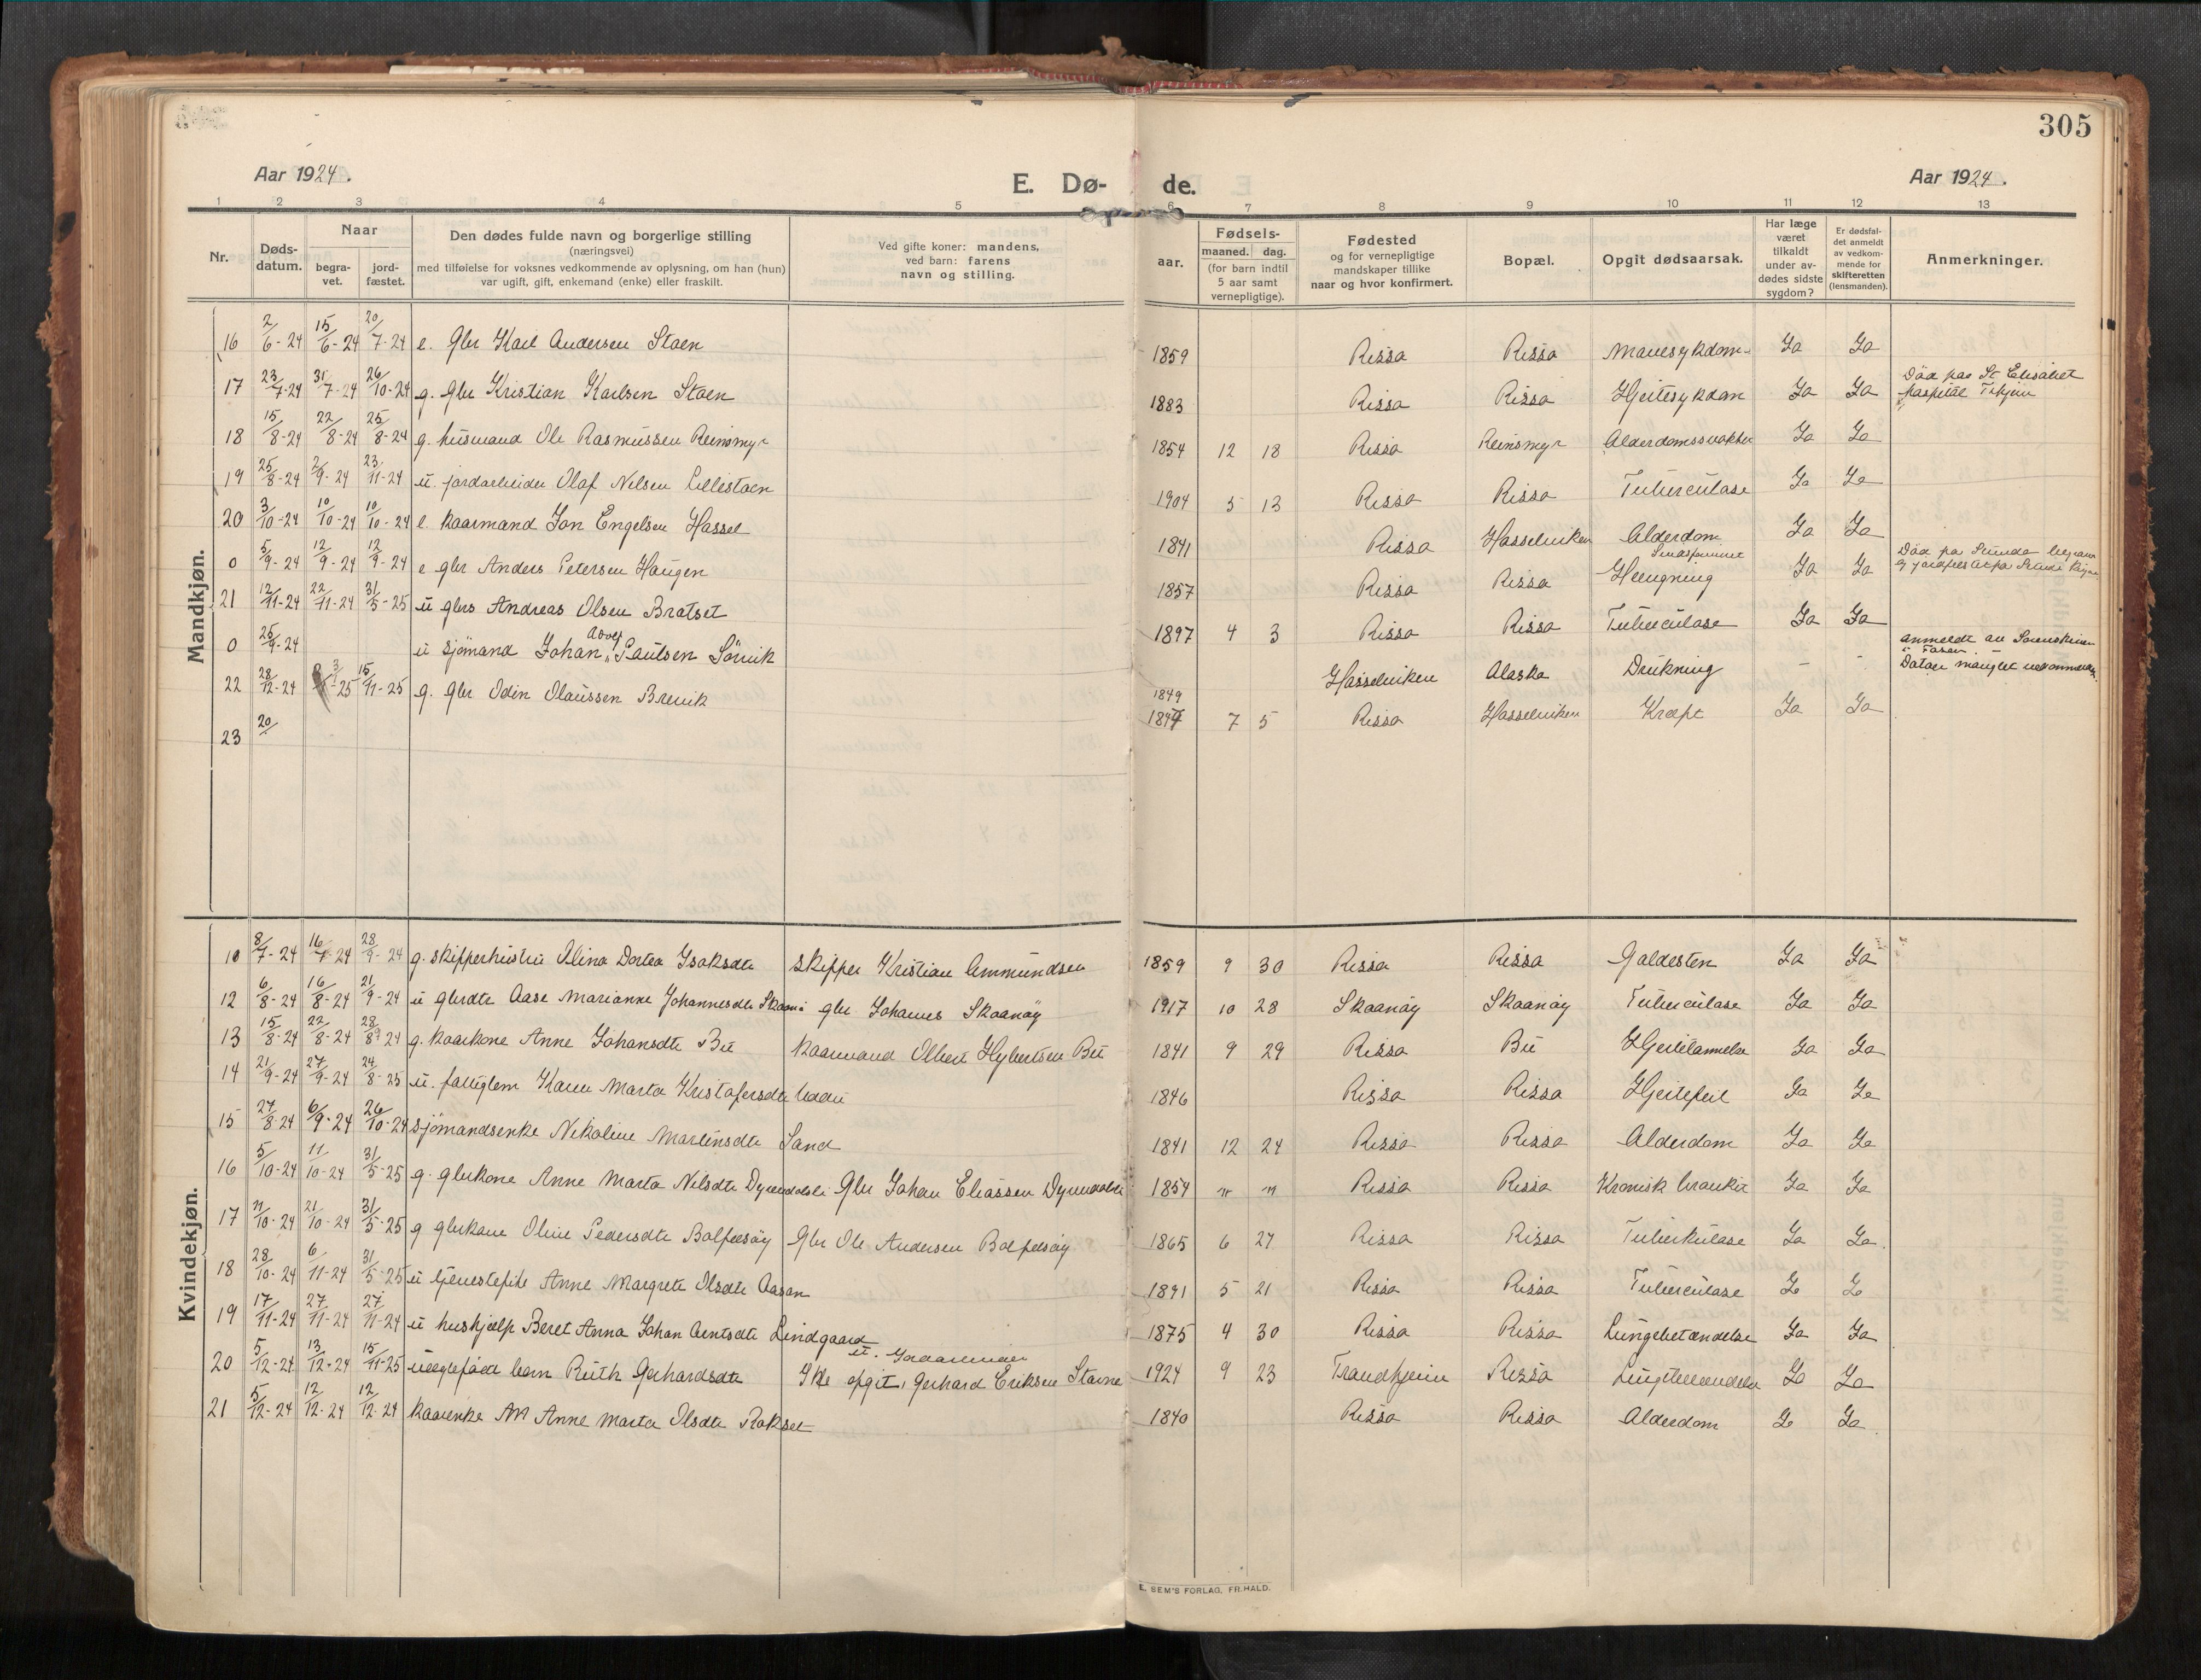 305
Aar 1924.
E. Dø- de.
Aar 1924.
1 2 3 4 5 6 7 8 9 10 11 12 13
Nr.
Døds-
datum.
Naar
begra-
vet.
jord-
fæstet.
Den dødes fulde navn og borgerlige stilling
(næringsvei)
med tilføielse for voksnes vedkommende av oplysning, om han (hun)
var ugift, gift, enkemand (enke) eller fraskilt.
Ved gifte koner: mandens,
ved barn: farens
navn og stilling.
Fødsels-
aar.
maaned. dag.
(for barn indtil
5 aar samt
vernepligtige).
Fødested
og for vernepligtige
mandskaper tillike
naar og hvor konfirmert.
Bopæl.
Opgit dødsaarsak.
Har læge
været
tilkaldt
under av-
dødes sidste
sygdom?
Er dødsfal-
det anmeldt
av vedkom-
mende for
skifteretten
(lensmanden).
Anmerkninger.
Mandkjøn.
16 2/6-24 15/6-24 20/7-24 e. Gbr Karl Andersen Staen 1859 Rissa Rissa Mavesykdom Ja Ja
17 23/7-24 31/7-24 26/10-24 g. gbr Kristian Karlsen Staen 1883 Rissa Rissa Hjertesykdom Ja Ja Død paa St Elisabet
hospital Trhjem
18 15/8-24 22/8-24 25/8-24 g. husmand Ole Rasmussen Reinsmyr 1854 12 18 Rissa Reinsmyr Alderdomssvakhet Ja Ja
19 25/8-24 2/9-24 23/11-24 u. jordarbeider Olaf Nilsen Lillestaen 1904 5 13 Rissa Rissa Tuberculose Ja Ja
20 3/10-24 10/10-24 10/10-24 e. kaarmand Jon Engelsen Hassel 1841 Rissa Hasselviken Alderdom Ja Ja
0 5/9-24 12/9-24 12/9-24 e gbr Anders Petersen Haugen 1857 Rissa Rissa Sindssvimmel
Hengning Ja Ja Død pa
21 12/11-24 22/11-24 31/5-25 u gbrs Andreas Olsen Bratset 1897 4 3 Rissa Rissa Tuberculose Ja Ja
0 25/9-24 u sjømand Johan Adolf Paulsen Sørvik Hasselviken Alaska Drukning - - anmeldt av
Datoen manglet ved anmeldelsen.
22 28/12-24 3/-25 15/11-25 g. gbr Odin Olaussen Brevik 1849
7 5 Rissa Hasselviken Kræft Ja Ja
23 20/
Kvindekjøn.
10 8/7-24 16/7-24 28/9-24 g. skipperhustru Olina Dortea Isaksdtr skipper Kristian Ammundsen 1859 9 30 Rissa Rissa Galdesten Ja Ja
12 6/8-24 16/8-24 21/9-24 u gbrdtr Aase Marianne Johannesdtr Skaanøi gbr Johannes Skaanøy 1917 10 28 Skaanøy Skaanøy Tuberculose Ja Ja
13 15/8-24 22/8-24 28/8-24 g. kaarkone Anne Johansdtr Bu kaarmand Olbert Hybertsen Bu 1841 9 29 Rissa Bu Hjertelammelse Ja Ja
14 21/9-24 27/9-24 24/8-25 u. fattiglem Karen Marta Kristofersdtr 1846 Rissa Rissa Hjertefeil Ja Ja
15 27/8-24 6/9-24 26/10-24 sjømandsenke Nikoline Martinsdtr Sand 1841 12 24 Rissa Rissa Alderdom Ja Ja
16 5/10-24 11/10-24 31/5-25 g. gbrkone Anne Marta Nilsdtr Dyrendalsli Gbr Johan Eliassen Dyrendalsli 1854 " " Rissa Rissa Kronisk bronkit Ja Ja
17 11/10-24 21/10-24 31/5-25 g gbrkone Oline Pedersdtr Balfretsøy Gbr Ole Andersen Balfretsøy 1865 6 27 Rissa Rissa Tuberkulose Ja Ja
18 28/10-24 6/11-24 31/5-25 u tjenestepike Anne Margrete Olsdtr Aasan 1891 5 21 Rissa Rissa Tuberculose Ja Ja
19 17/11-24 27/11-24 27/11-24 u hushjælp Beret Anna Johan Arntsdtr Lindgaard 1875 4 30 Rissa Rissa Lungebetændelse Ja Ja
20 5/12-24 13/12-24 15/11-25 uegtefødt barn Ruth Gerhardsdtr u. Jordarbeider
Ikke opgit, Gerhard Eriksen Stavne 1924 9 23 Trondhjem Rissa Lungebetændelse Ja Ja
21 5/12-24 12/12-24 12/12-24 kaarenke Anne Marta Olsdtr Rokset 1840 Rissa Rissa Alderdom Ja Ja
E. SEM'S FORLAG, FR.HALD.